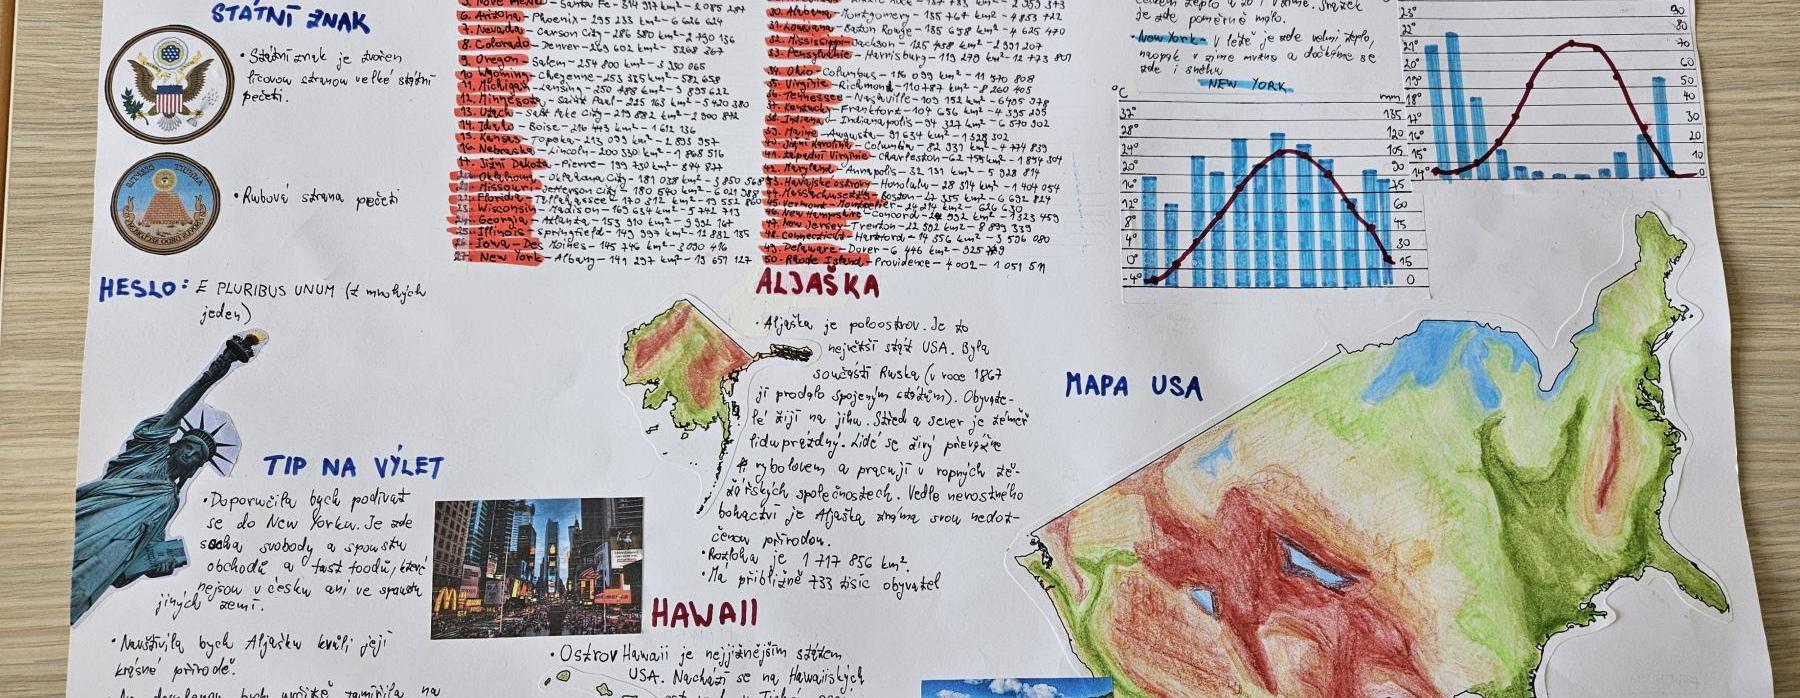 STÁTNÍ ZNAK
• Státní znak je tvořen
lícovou stranou velké státní
pečeti.
• Rubová strana pečeti
HESLO: E PLURIBUS UNUM (z mnohých
jeden)
TIP NA VÝLET
• Doporučila bych podívat
se do New Yorku. Je zde
socha svobody a spoustu
obchodů a fast foodů, které
nejsou v česku ani ve spoustu
jiných zemí.
• Navštívila bych Aljašku kvůli její
krásné přírodě.
6. Arizona – Phoenix – 295 233 km² – 6 626 624
7. Nevada – Carson City – 286 380 km² – 2 790 136
8. Colorado – Denver – 269 602 km² – 5268 367
9. Oregon – Salem – 254 800 km² – 3 930 065
10. Wyoming – Cheyenne – 253 335 km² – 582 658
11. Michigan – Lansing – 250 488 km² – 9 895 622
12. Minnesota – Saint Paul – 225 163 km² – 5 420 380
13. Utah – Salt Lake City – 219 882 km² – 2 900 872
14. Idaho – Boise – 216 443 km² – 1 612 136
15. Kansas – Topeka – 213 099 km² – 2 893 957
16. Nebraska – Lincoln – 200 330 km² – 1 868 516
17. Jižní Dakota – Pierre – 199 730 km² – 844 877
Oklahoma – Oklahoma City – 181 038 km² – 3 850 568
Missouri – Jefferson City – 180 540 km²
Florida – Tallahassee – 170 312 km² – 19 552 860
23. Wisconsin – Madison – 169 634 km² – 5 742 713
24. Georgia – Atlanta – 153 910 km² – 9 992 167
25. Illinois – Springfield – 149 997 km² – 12 882 135
26. Iowa – Des Moines – 145 746 km² – 3 090 416
27. New York – Albany – 141 297 km² – 19 651 127
30. Alabama – Montgomery – 135 767 km² – 4 853 722
31. Louisiana – Baton Rouge – 135 658 km² – 4 625 470
32. Mississippi – Jackson – 125 438 km² – 2 991 207
33. Pensylvánie – Harrisburg – 119 283 km²
34. Ohio – Columbus – 116 099 km² – 11 570 808
35. Virginie – Richmond – 110 787 km² – 8 260 405
36. Tennessee – Nashville – 109 152 km² – 6495 978
37. Kentucky – Frankfort – 104 656 km² – 4 395 295
38. Indiana – Indianapolis – 94 327 km² – 6 570 902
39. Maine – Augusta – 91 634 km² – 1 328 302
40. Jižní Karolína – Columbia – 82 931 km² – 4 774 839
41. Západní Virginie – Charleston – 62 755 km² – 1 854 304
42. Maryland – Annapolis – 32 131 km² – 5 928 814
43. Havajské ostrovy – Honolulu – 28 314 km² – 1 404 054
44. Massachusetts – Boston – 27 335 km² – 6 692 824
45. Vermont – Montpelier – 24 914 km² – 626 630
46. New Hampshire – Concord – 24 392 km² – 1 323 459
47. New Jersey – Trenton – 22 592 km² – 8 899 339
48. Connecticut – Hartford – 14 356 km² – 3 596 080
49. Delaware – Dover – 6 446 km²
50. Rhode Island – Providence – 4 002 – 1 051 511
ALJAŠKA
• Aljaška je poloostrov. Je to
největší stát USA. Byla
součástí Ruska (v roce 1867
ji prodalo spojeným státům). Obyvate-
lé žijí na jihu. Střed a sever je téměř
liduprázdný. Lidé se živí převážně
rybolovem a pracují v ropných tě-
žařských společnostech. Vedle nerostného
bohactví je Aljaška známa svou nedot-
čenou přírodou.
• Rozloha je 1 717 856 km².
• Má přibližně 733 tisíc obyvatel
HAWAII
• Ostrov Hawaii je nejjižnějším státem
USA. Nachází se na Hawaiiských
je zde poměrně málo.
• New York – v létě je zde velmi teplo,
naopak v zimě mrzno a dočkáme se
zde i sněhu
NEW YORK
°C mm
32° 135
28° 120
24° 105
20° 90
16° 75
12° 60
8° 45
4° 30
0° 15
-4° 0
23° 90
22° 80
21° 70
20° 60
19° 50
18° 40
17° 30
16° 20
15° 10
14° 0
MAPA USA